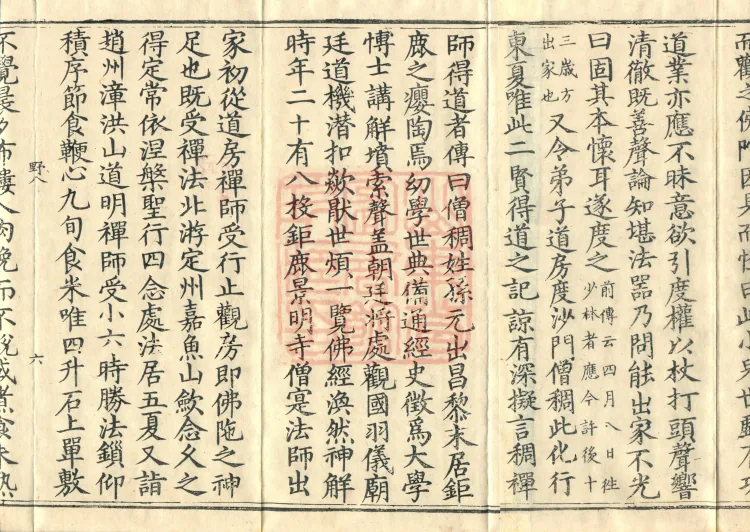 而觀之佛陀因見而怪曰此小兒世戲有功
道業亦應不昧意欲引度權以杖打頭聲響
清徹既善聲論知堪法器乃問能出家不光
曰固其本懷耳遂度之前傳云四月八日往少林者應今許後十
三歲方出家也又令弟子道房度沙門僧稠此化行
東夏唯此二賢得道之記諒有深擬言稠禪
師得道者傳曰僧稠姓孫元出昌黎末居鉅
鹿之癭陶焉幼學世典備通經史徵爲大學
博士講解墳索聲盖朝廷將處觀國羽儀廟
廷道機潛扣歘猒世煩一覽佛經渙然神解
時年二十有八投鉅鹿景明寺僧寔法師出
家初從道房禪師受行止觀房即佛陁之神
足也既受禪法北游定州嘉魚山歛念久之
得定常依涅槃聖行四念處法居五夏又詣
趙州漳洪山道明禪師受小六時勝法鎖仰
積序節食鞭心九旬食米唯四升石上單敷
野八 六
不覺晨夕布縷入肉挽而不脫或煮食未熟